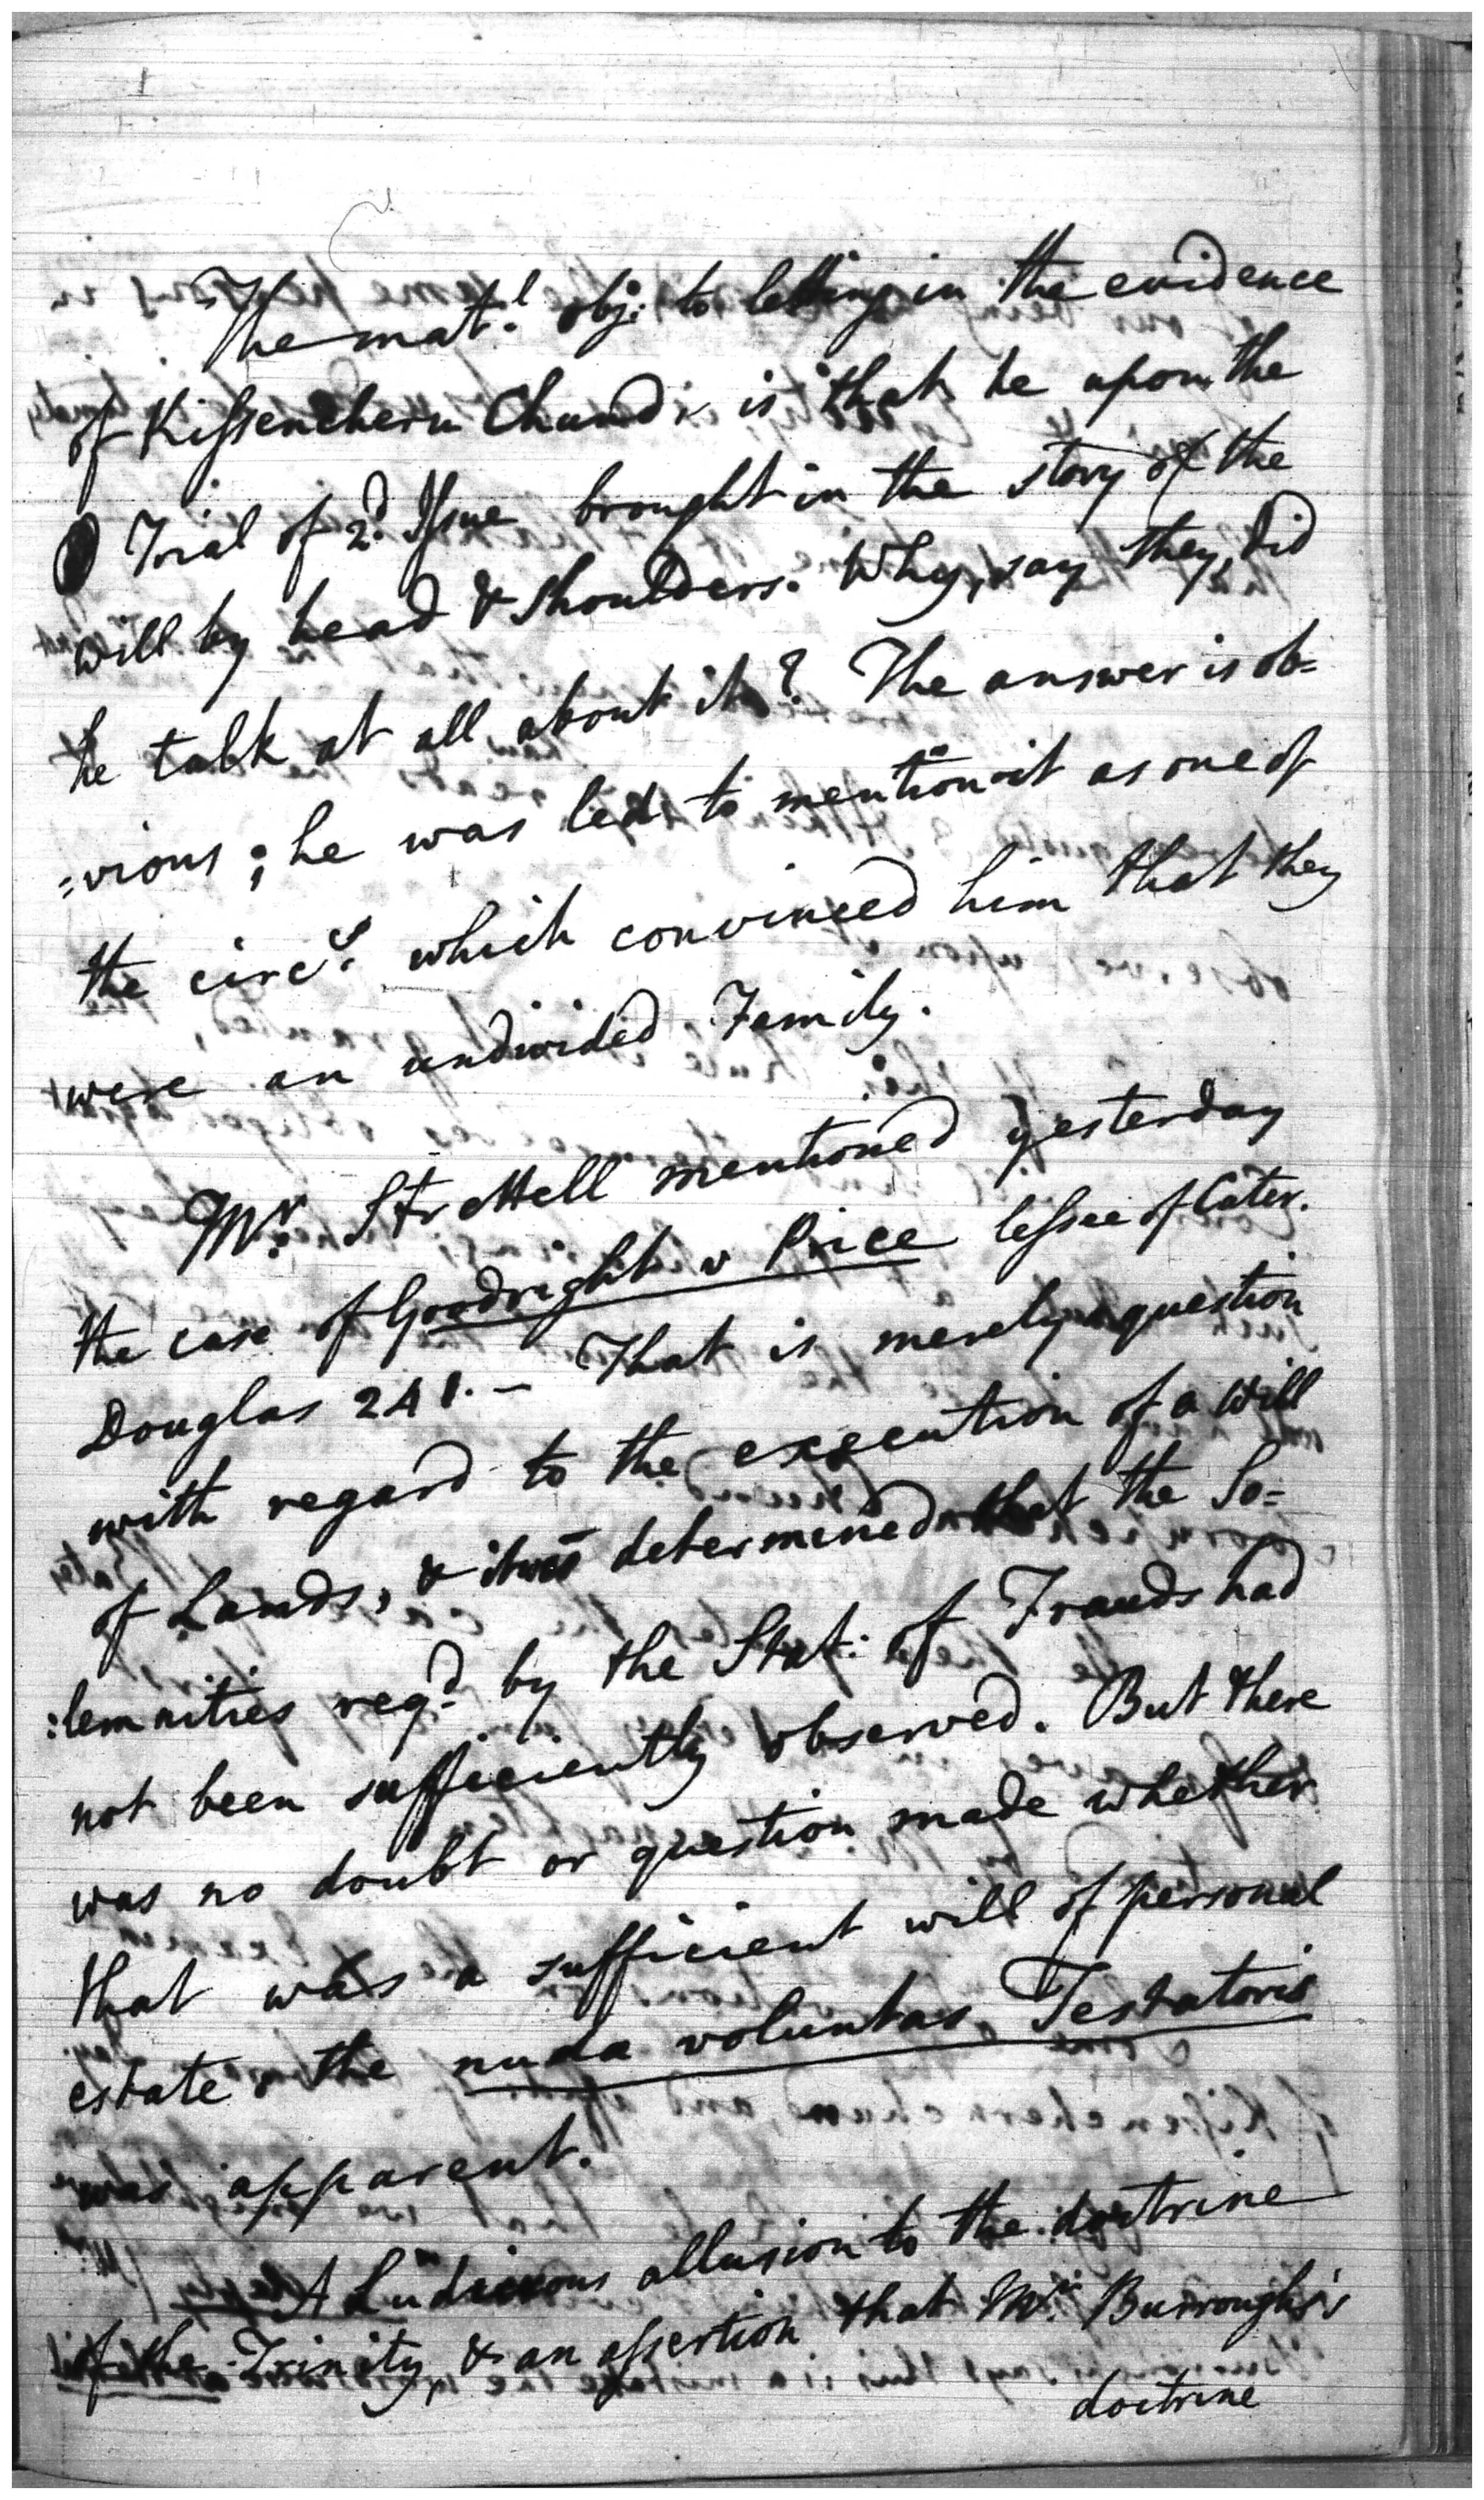 The mat.l obj: to letting in the evidence
of Kissenchern Chund, is that he upon the
Trial of 2.d Issue brought in the story of the
will by head & shoulders. Why, say they, did
he talk at all about it? The answer is ob=
=vious; he was led to mention it as one of
the circ.s which convinced him that they
were an undivided Family.
Mr. Strettell mentioned yesterday
the case of Goodright v Price lessee of Cater.
Douglas 241. - That is merely a question
with regard to the execution of a Will
of Lands, & it was determined that the So=
:lemnities req.d by the Stat: of Frauds had
not been sufficiently observed. But there
was no doubt or question made whether
that was a sufficient will of personal
estate & the nuda voluntas Testatoris
was apparent.
A Ludicrous allusion to the doctrine
of the Trinity, & an assertion that Mr. Burroughs's
doctrine